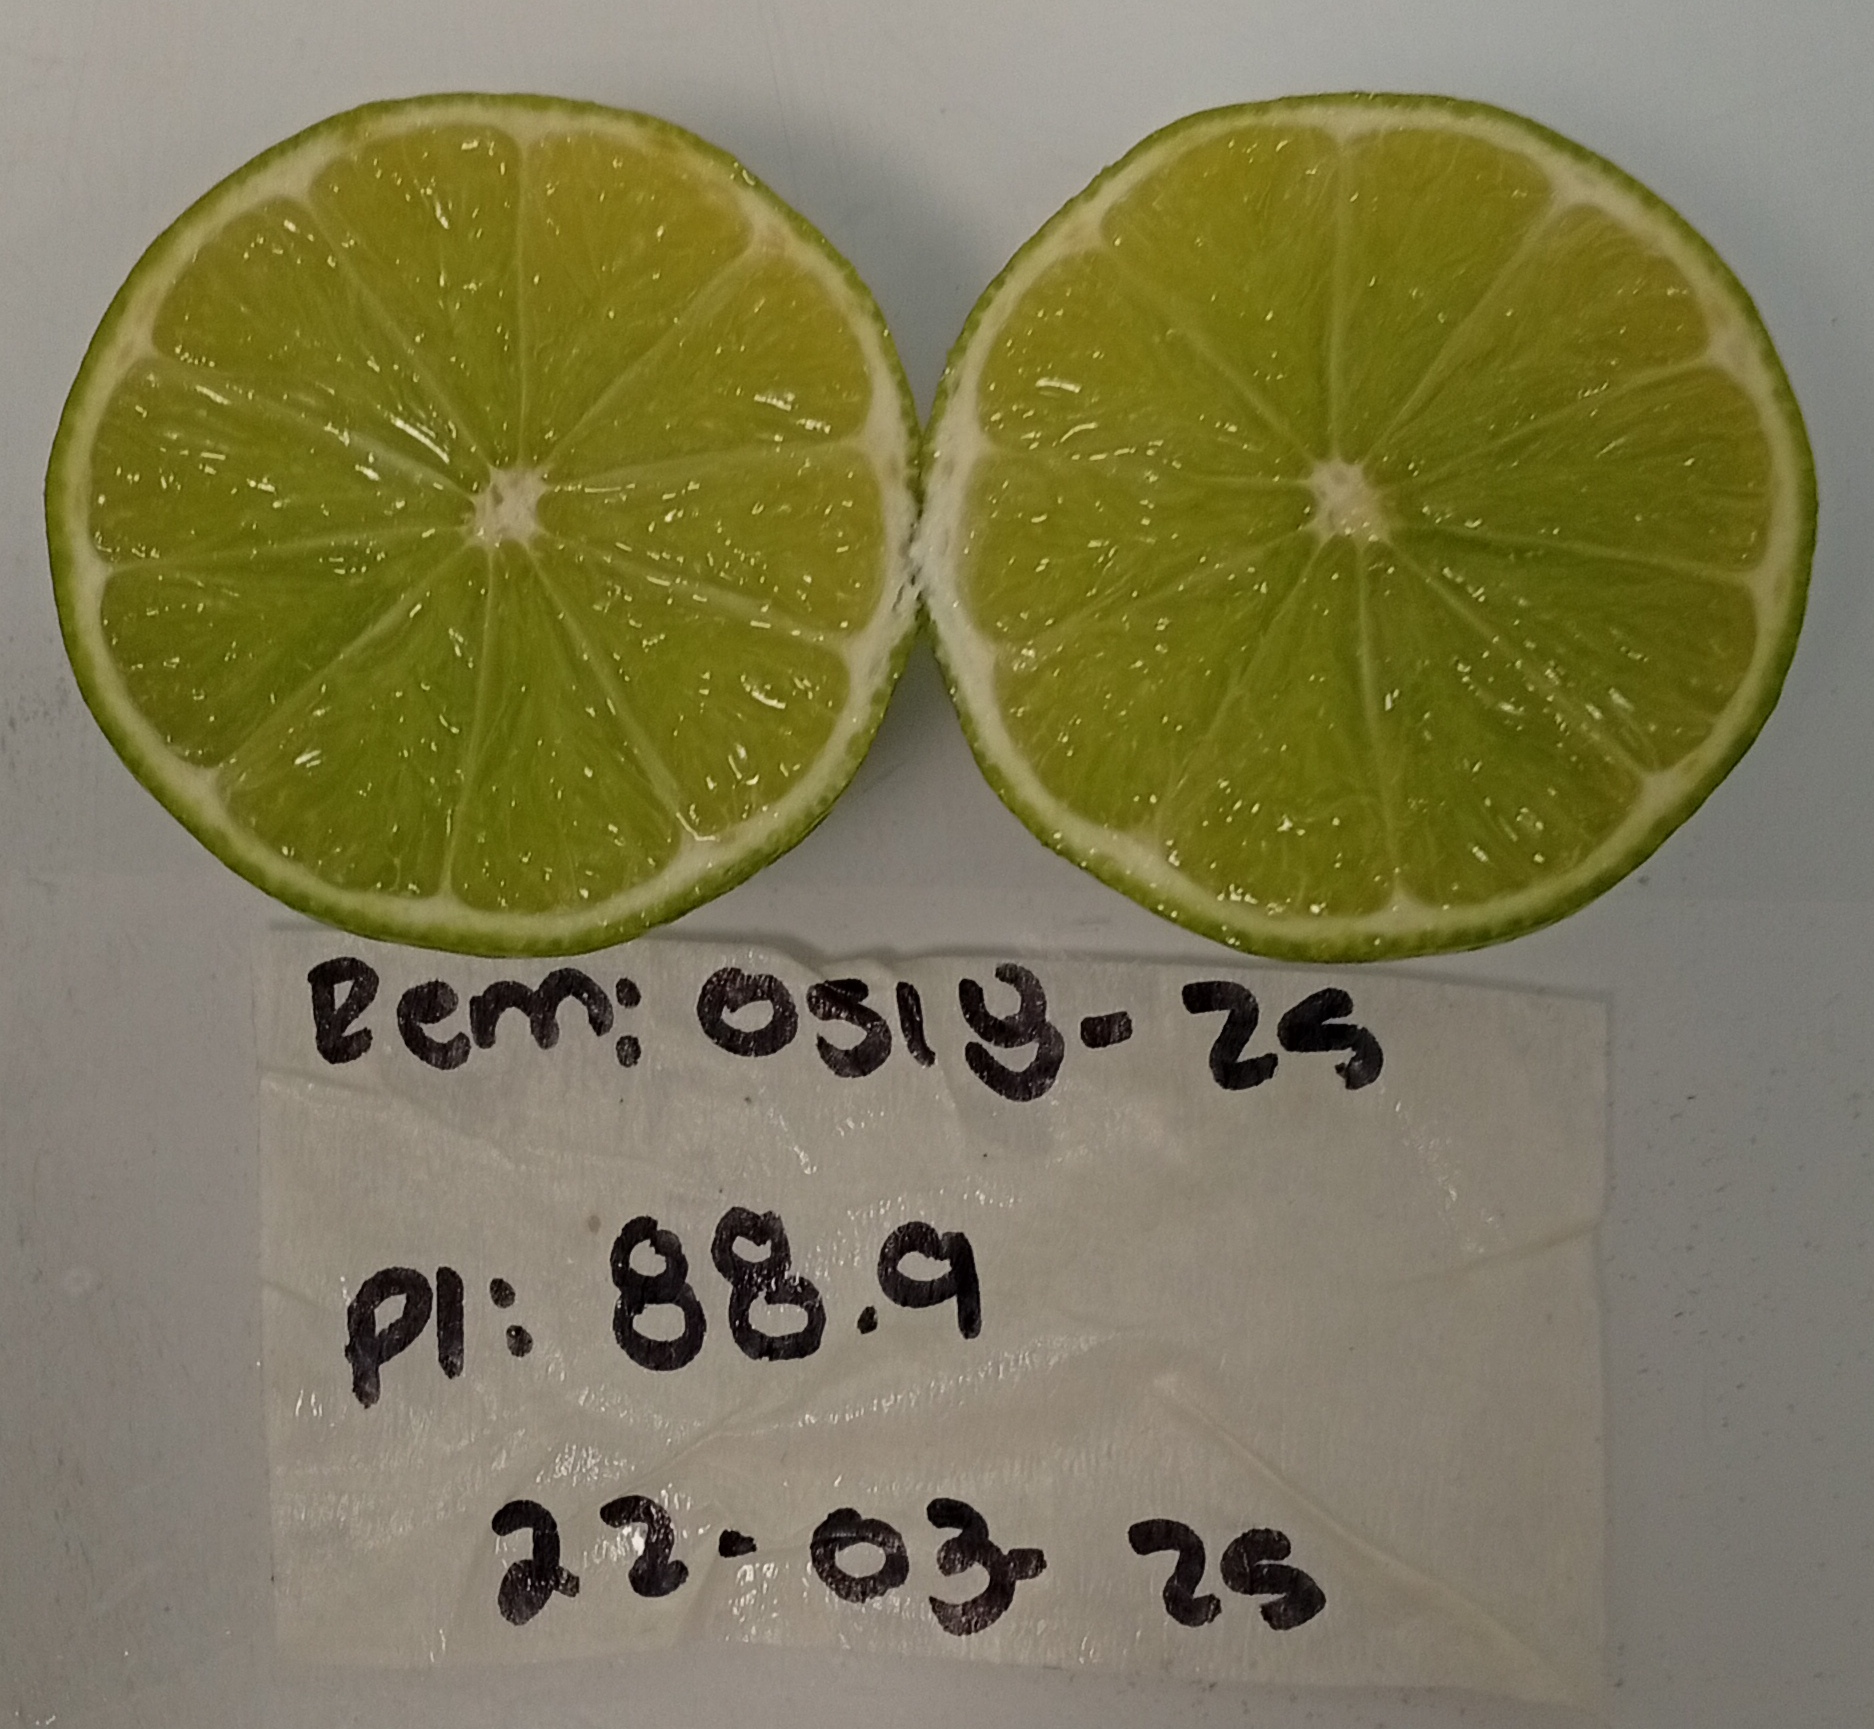 Rem: 0518-25
PI: 88.9
22-03-25